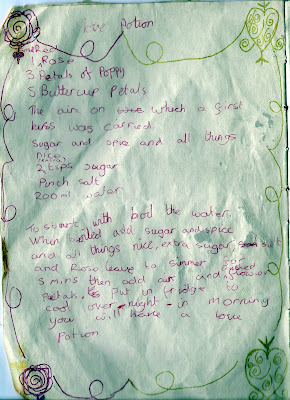 love Potion
one Red
1 Rose
3 Petals of Poppy
5 Buttercup Petals
The air on which a first
kiss was carried
Sugar and spice and all things
nice
2 tsps sugar
Pinch salt
200ml water
To start with boil the water.
When boiled add sugar and spice
and all things nice, extra sugar, salt
and Rose leave to simmer for
5 mins then add air and crushed flower
Petals. Put in fridge to
cool over-night - in morning
you will have a love
Potion